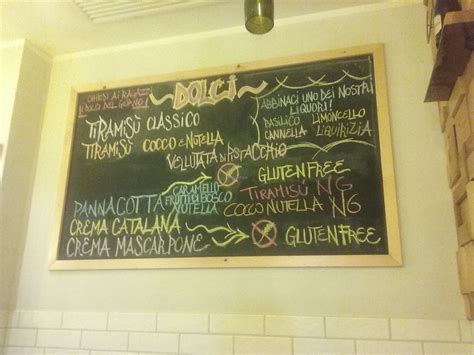 CHIEDI AI RAGAZZI
I DOLCI DEL GIORNO!
DOLCI
ABBINACI UNO DEI NOSTRI
LIQUORI!
BASILICO LIMONCELLO
CANNELLA LIQUIRIZIA
TIRAMISÙ CLASSICO
TIRAMISÙ COCCO E NUTELLA
VELLUTATA DI PISTACCHIO
GLUTENFREE
PANNACOTTA
CARAMELLO
FRUTTI DI BOSCO
NUTELLA
TIRAMISÙ NG
COCCO NUTELLA NG
CREMA CATALANA
CREMA MASCARPONE
GLUTENFREE